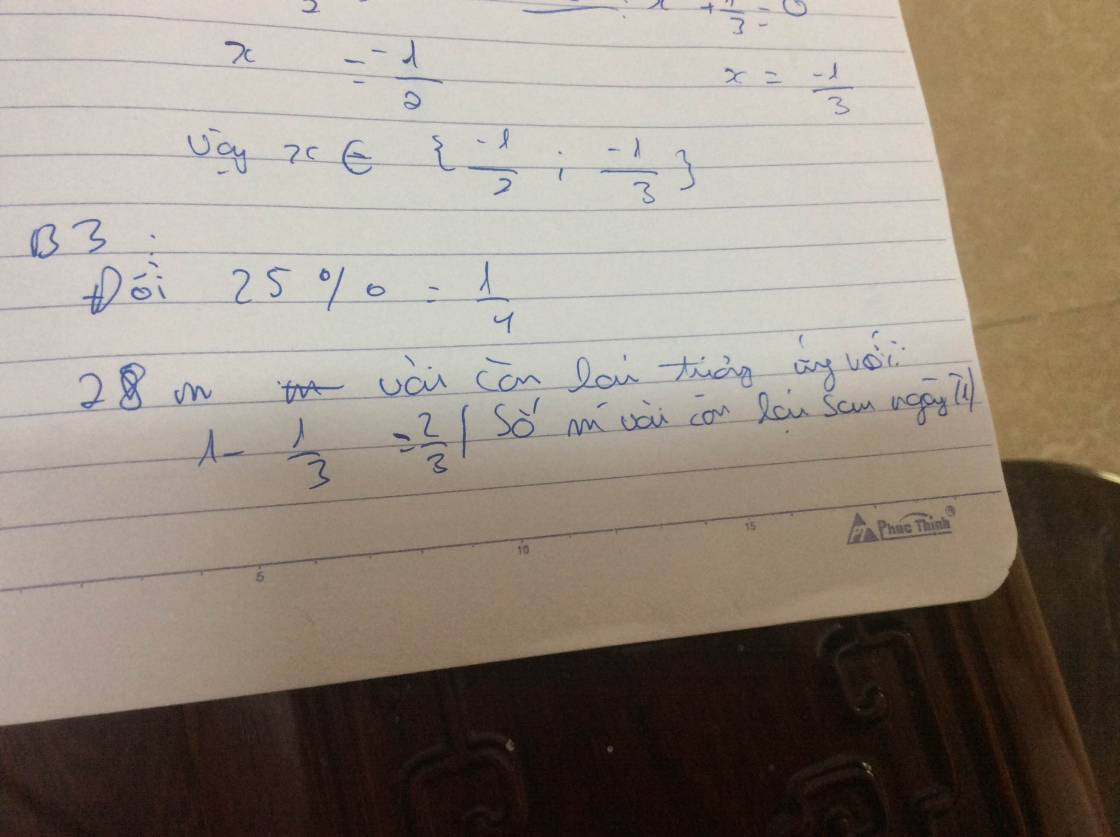 x + 1/3 = 0
x = -1/2
x = -1/3
Vậy x ∈ { -1/2 ; -1/3 }
B3 :
Đổi 25% = 1/4
28 m vải còn lại tương ứng với:
1 - 1/3 = 2/3 ( Số m vải còn lại sau ngày T1)
5 10 15
Phuc Thinh®